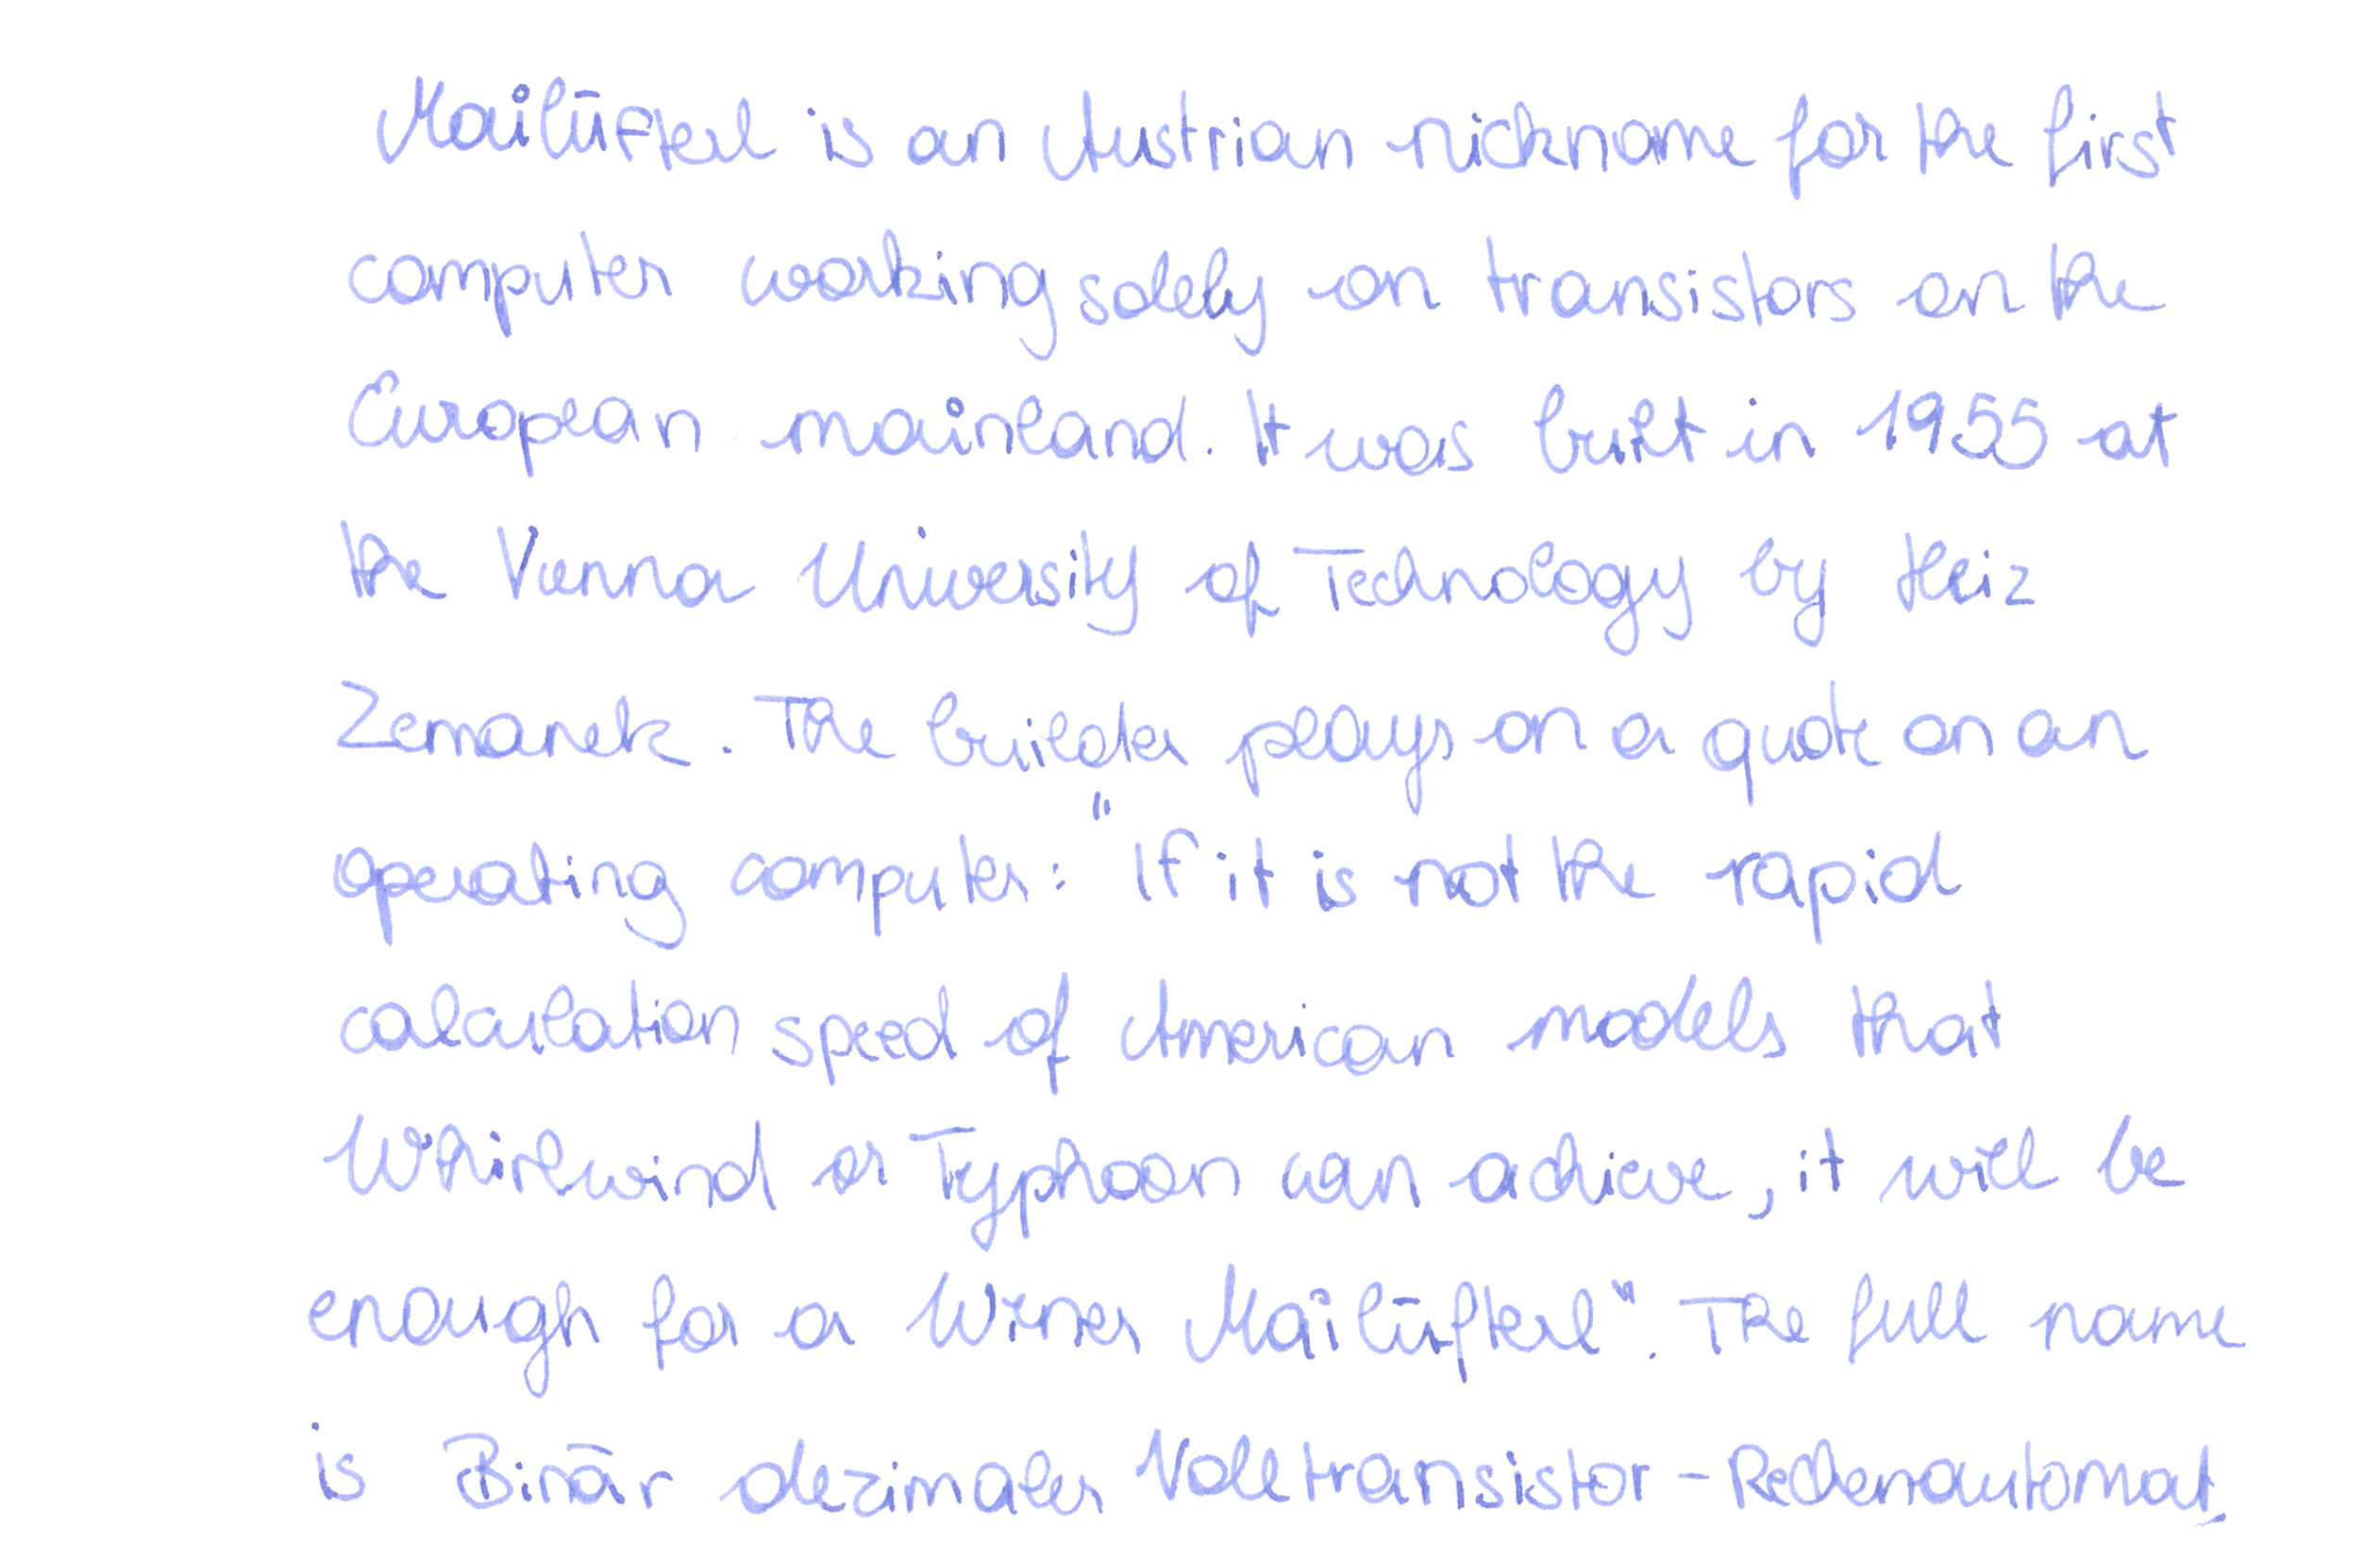 Mailüfterl is an Austrian nickname for the first
computer working solely on transistors on the
European mainland. It was built in 1955 at
the Vienna University of Technology by Heiz
Zemanek. The builder plays on a quote on an
operating computer: "If it is not the rapid
calculation speed of American models that
Whirlwind or Typhoon can achieve, it will be
enough for a Wiener Mailüfterl". The full name
is Binär dezimaler Volltransistor-Rechenautomat